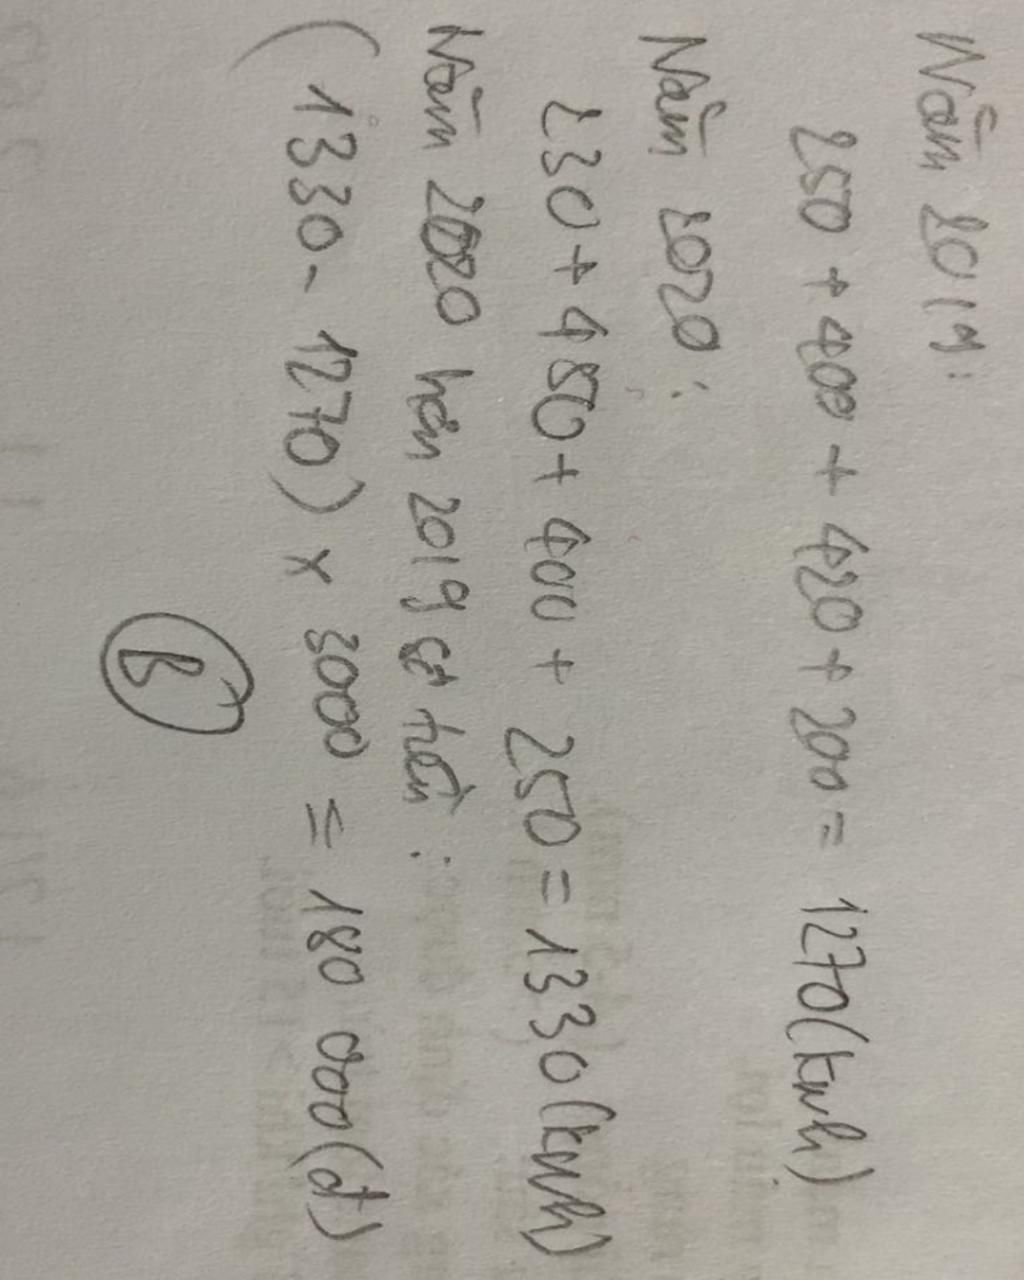 Năm 2019:
250 + 400 + 420 + 200 = 1270(kwh)
Năm 2020:
230 + 450 + 400 + 250 = 1330(kwh)
Năm 2020 hơn 2019 số tiền:
(1330 - 1270) x 3000 = 180 000(đ)
B